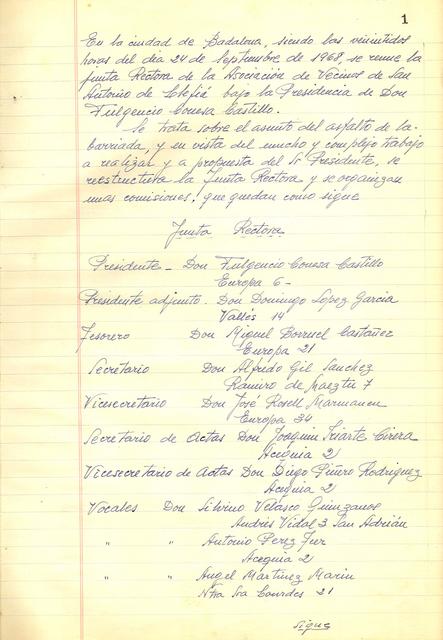 1
En la ciudad de Badalona, siendo las veintidos
horas del dia 24 de Septiembre de 1968, se reune la
Junta Rectora de la Asociación de Vecinos de San
Antonio de Llefiá bajo la Presidencia de Don
Fulgencio Conesa Castillo.
Se trata sobre el asunto del asfalto de la
barriada, y en vista del mucho y complejo trabajo
a realizar y a propuesta del Sr Presidente, se
reestructura la Junta Rectora y se organizan
unas comisiones, que quedan como sigue
Junta Rectora
Presidente - Don Fulgencio Conesa Castillo
Europa 6 -
Presidente adjunto. Don Domingo Lopez Garcia
Vallés 14
Tesorero Don Miguel Borruel Castañez
Europa 21
Secretario Don Alfredo Gil Sanchez
Ramiro de Maeztu 7
Vicesecretario Don José Rosell Marmaneu
Europa 34
Secretario de Actas Don Joaquin Iriarte Cirera
Acequia 2
Vicesecretario de Actas Don Diego Piñero Rodriguez
Acequia 2
Vocales Don Silvino Velasco
Andrés Vidal 3 San Adrián
" " Antonio Perez
Acequia 2
" " Angel Martinez Marin
Ntra Sra Lourdes 21
Sigue